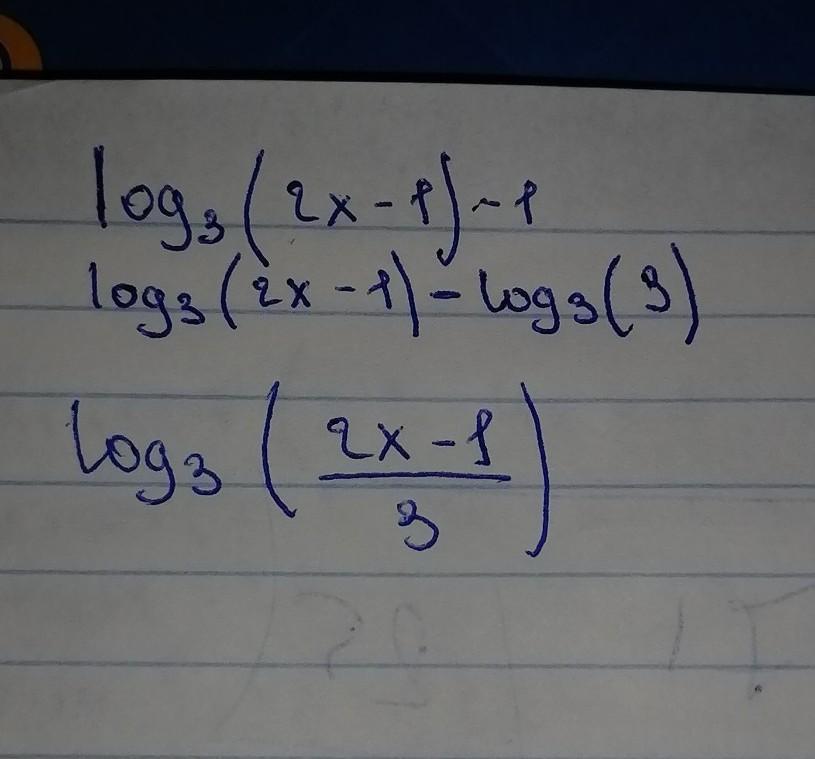 log₃(2x-1)-1
log₃(2x-1)-log₃(3)
log₃((2x-1)/3)